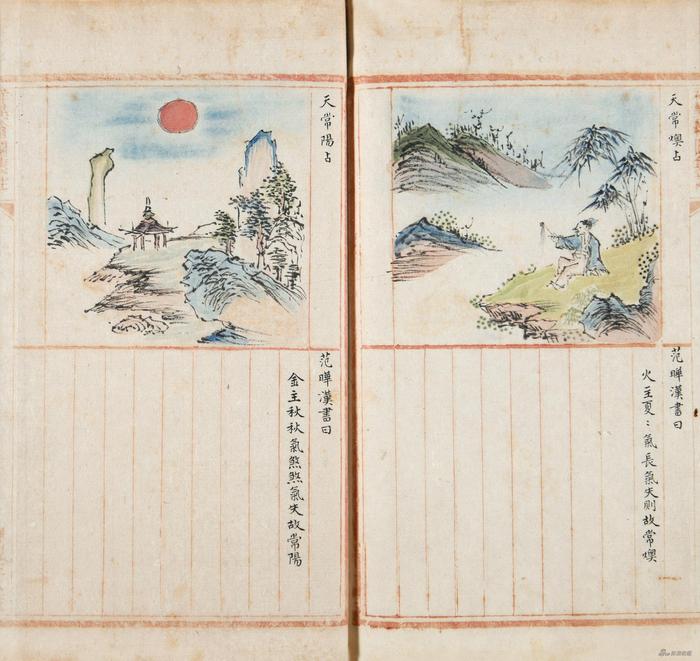 天常燠占
范曄漢書曰
火主夏〻氣長氣失則故常燠
天常陽占
范曄漢書曰
金主秋秋氣煞煞氣失故常陽